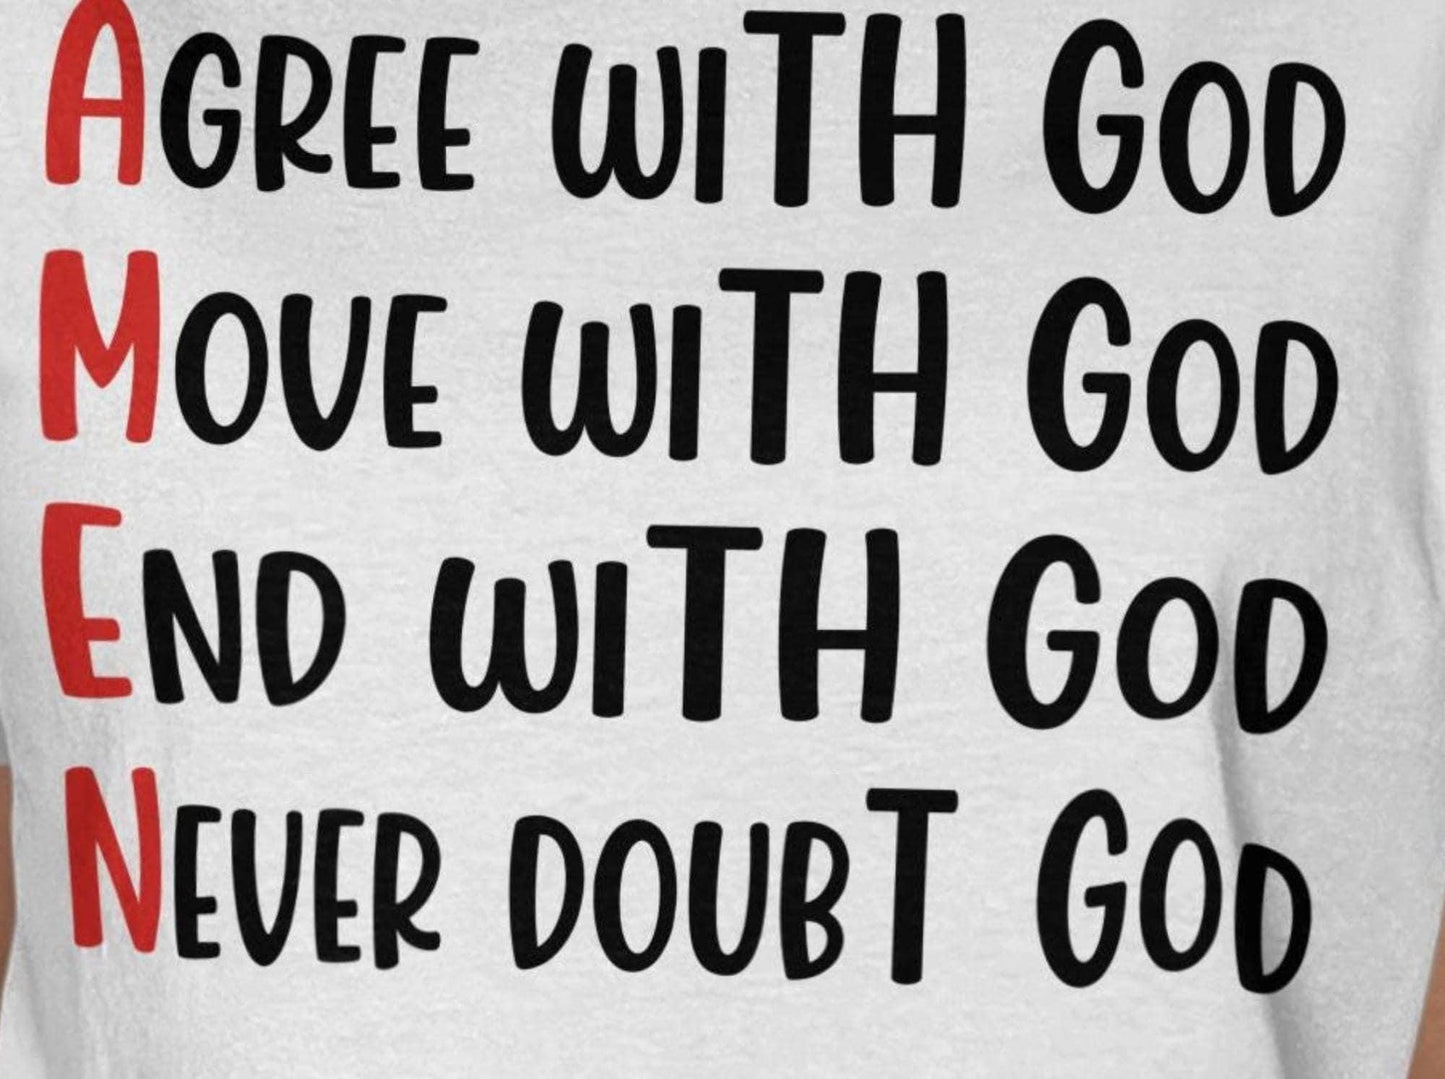 AGREE WITH GOD
MOVE WITH GOD
END WITH GOD
NEVER DOUBT GOD